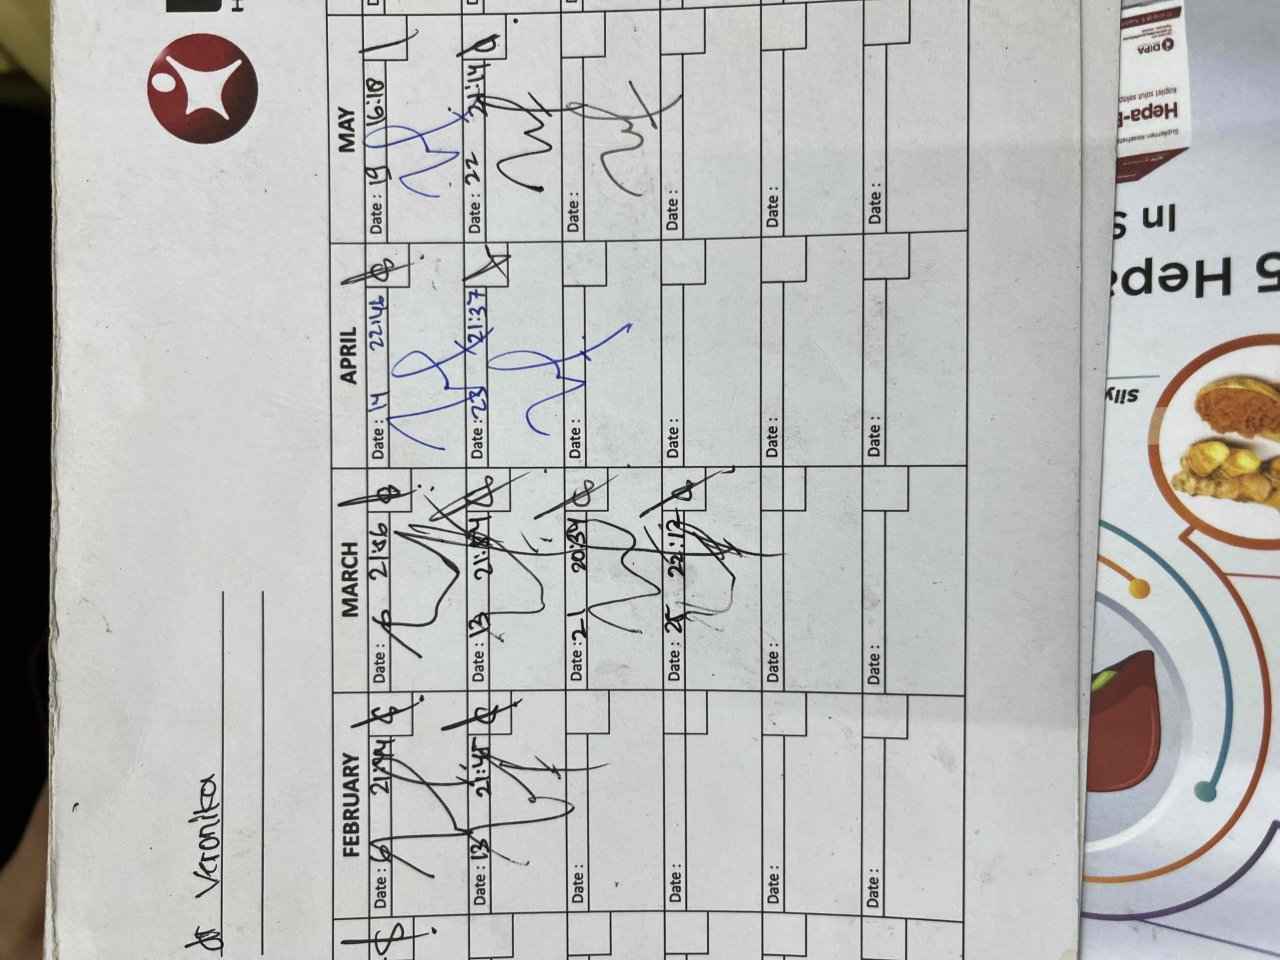 dr Veronika
FEBRUARY
Date : 6 21:44
Date : 13 21:45
Date :
Date :
Date :
Date :
MARCH
Date : 6
Date : 13
Date : 21 20:34
Date : 25 22:12
Date :
Date :
APRIL
Date : 14 22:46
Date : 23 21:37
Date :
Date :
Date :
Date :
MAY
Date : 19 16:18
Date : 22 21:14
Date :
Date :
Date :
Date :
DIPA
Hepa-
5 Hepa
In S
sily